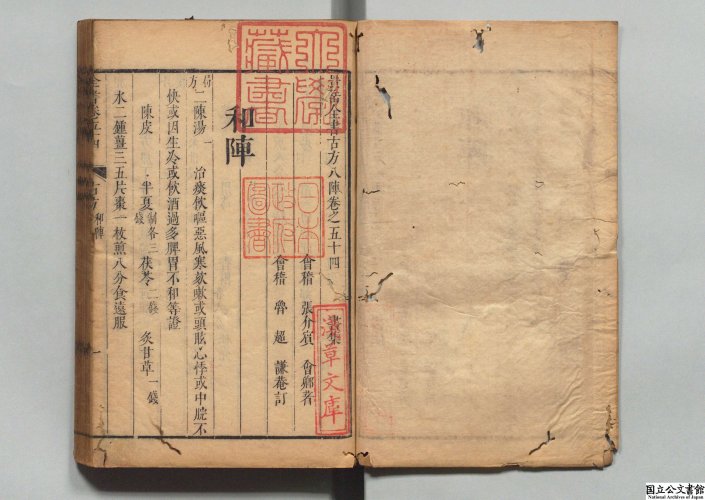 景岳全書古方八陣卷之五十四
會稽 張介賔 會卿著
會稽 魯超 謙菴訂
和陣
局方 二陳湯一 治痰飲嘔惡風寒欬嗽或頭眩心悸或中脘不
快或因生冷或飲酒過多脾胃不和等證
陳皮 半夏 製各三錢 茯苓 二錢 炙甘草 一錢
水二鍾薑三五片棗一枚煎八分食遠服
全書卷五十四 古方 和陣 一
藏書
日本政府圖書
草文庫
国立公文書館
National Archives of Japan